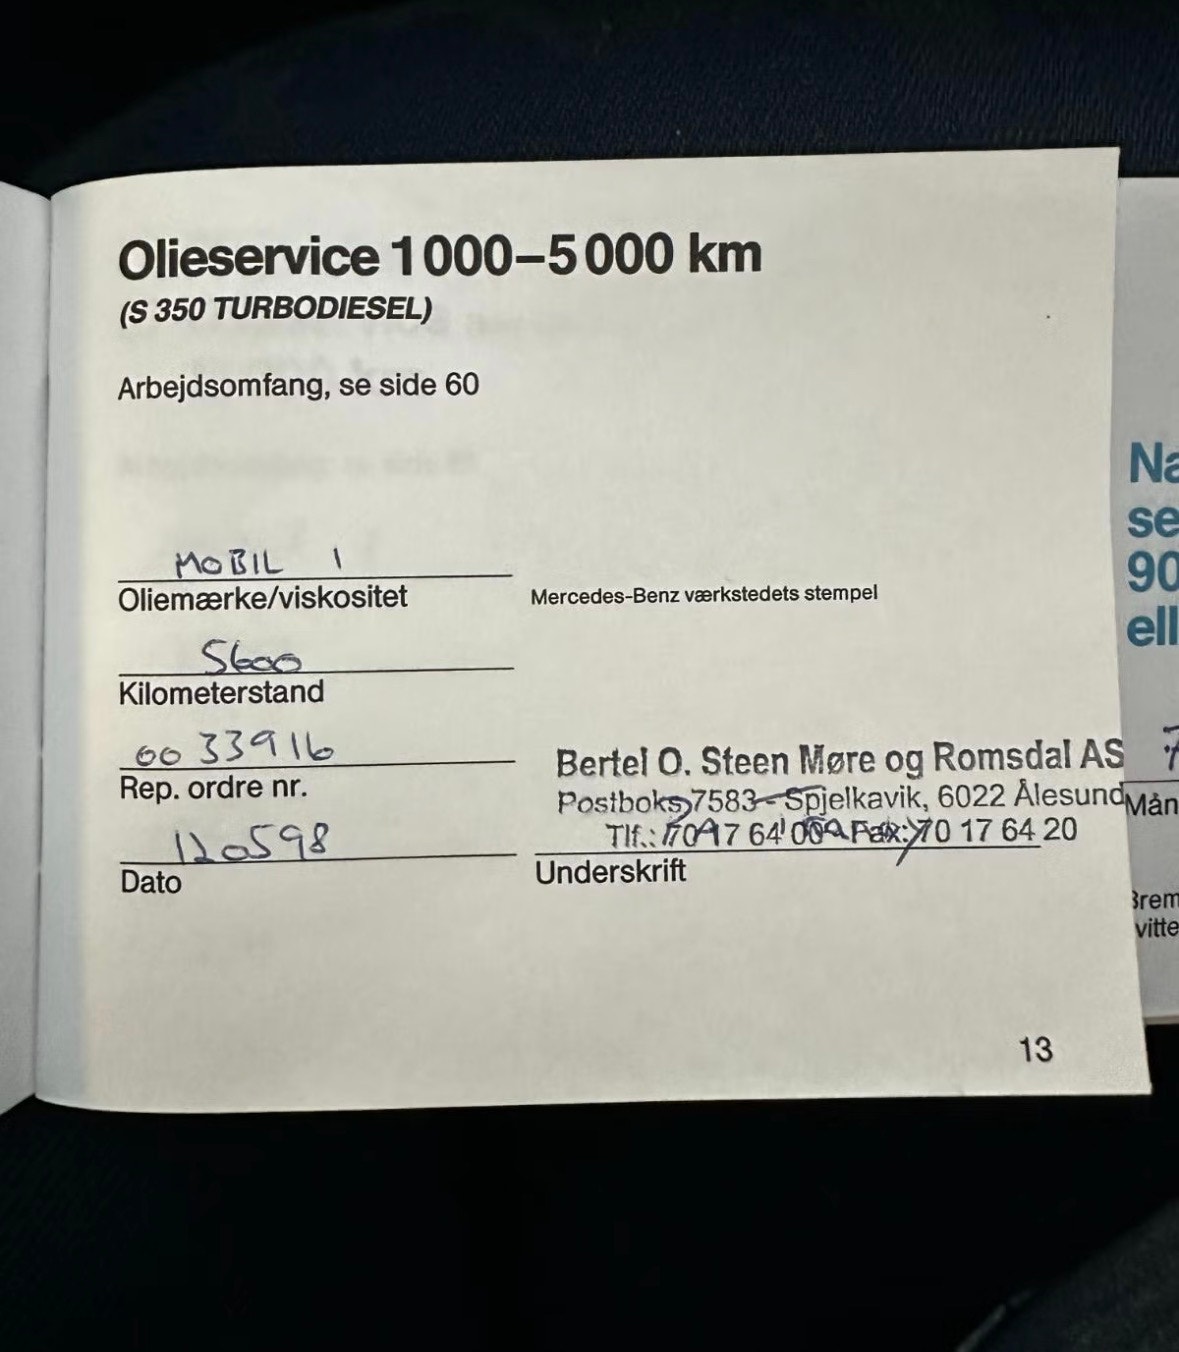 Olieservice 1 000–5 000 km
(S 350 TURBODIESEL)
Arbejdsomfang, se side 60
MOBIL 1
Oliemærke/viskositet
Mercedes-Benz værkstedets stempel
5600
Kilometerstand
0033916
Rep. ordre nr.
120598
Dato
Bertel O. Steen Møre og Romsdal AS
Postboks 7583 - Spjelkavik, 6022 Ålesund
Tlf.: 70 17 64 00 Fax: 70 17 64 20
Underskrift
13
Na
se
90
ell
7
Mån
Brem
vitte